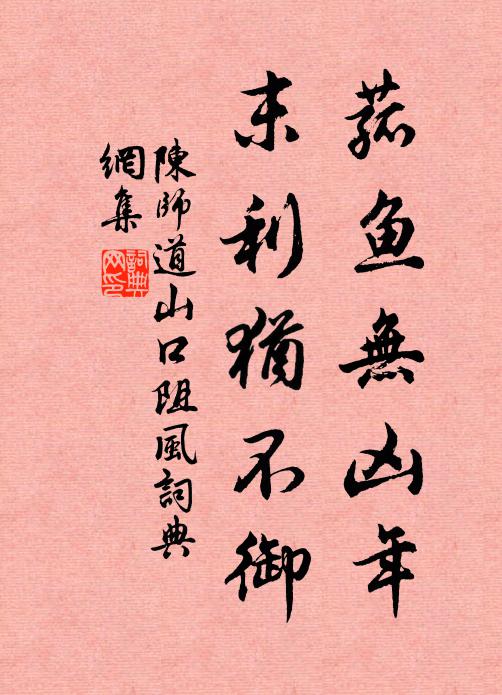 菰鱼無凶年
末利猶不御
陳師道山口阻風詞典
網集
詞典
网印